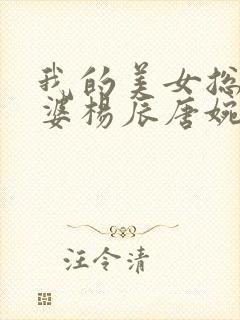 我的美女总
婆杨辰唐婉
汪令清